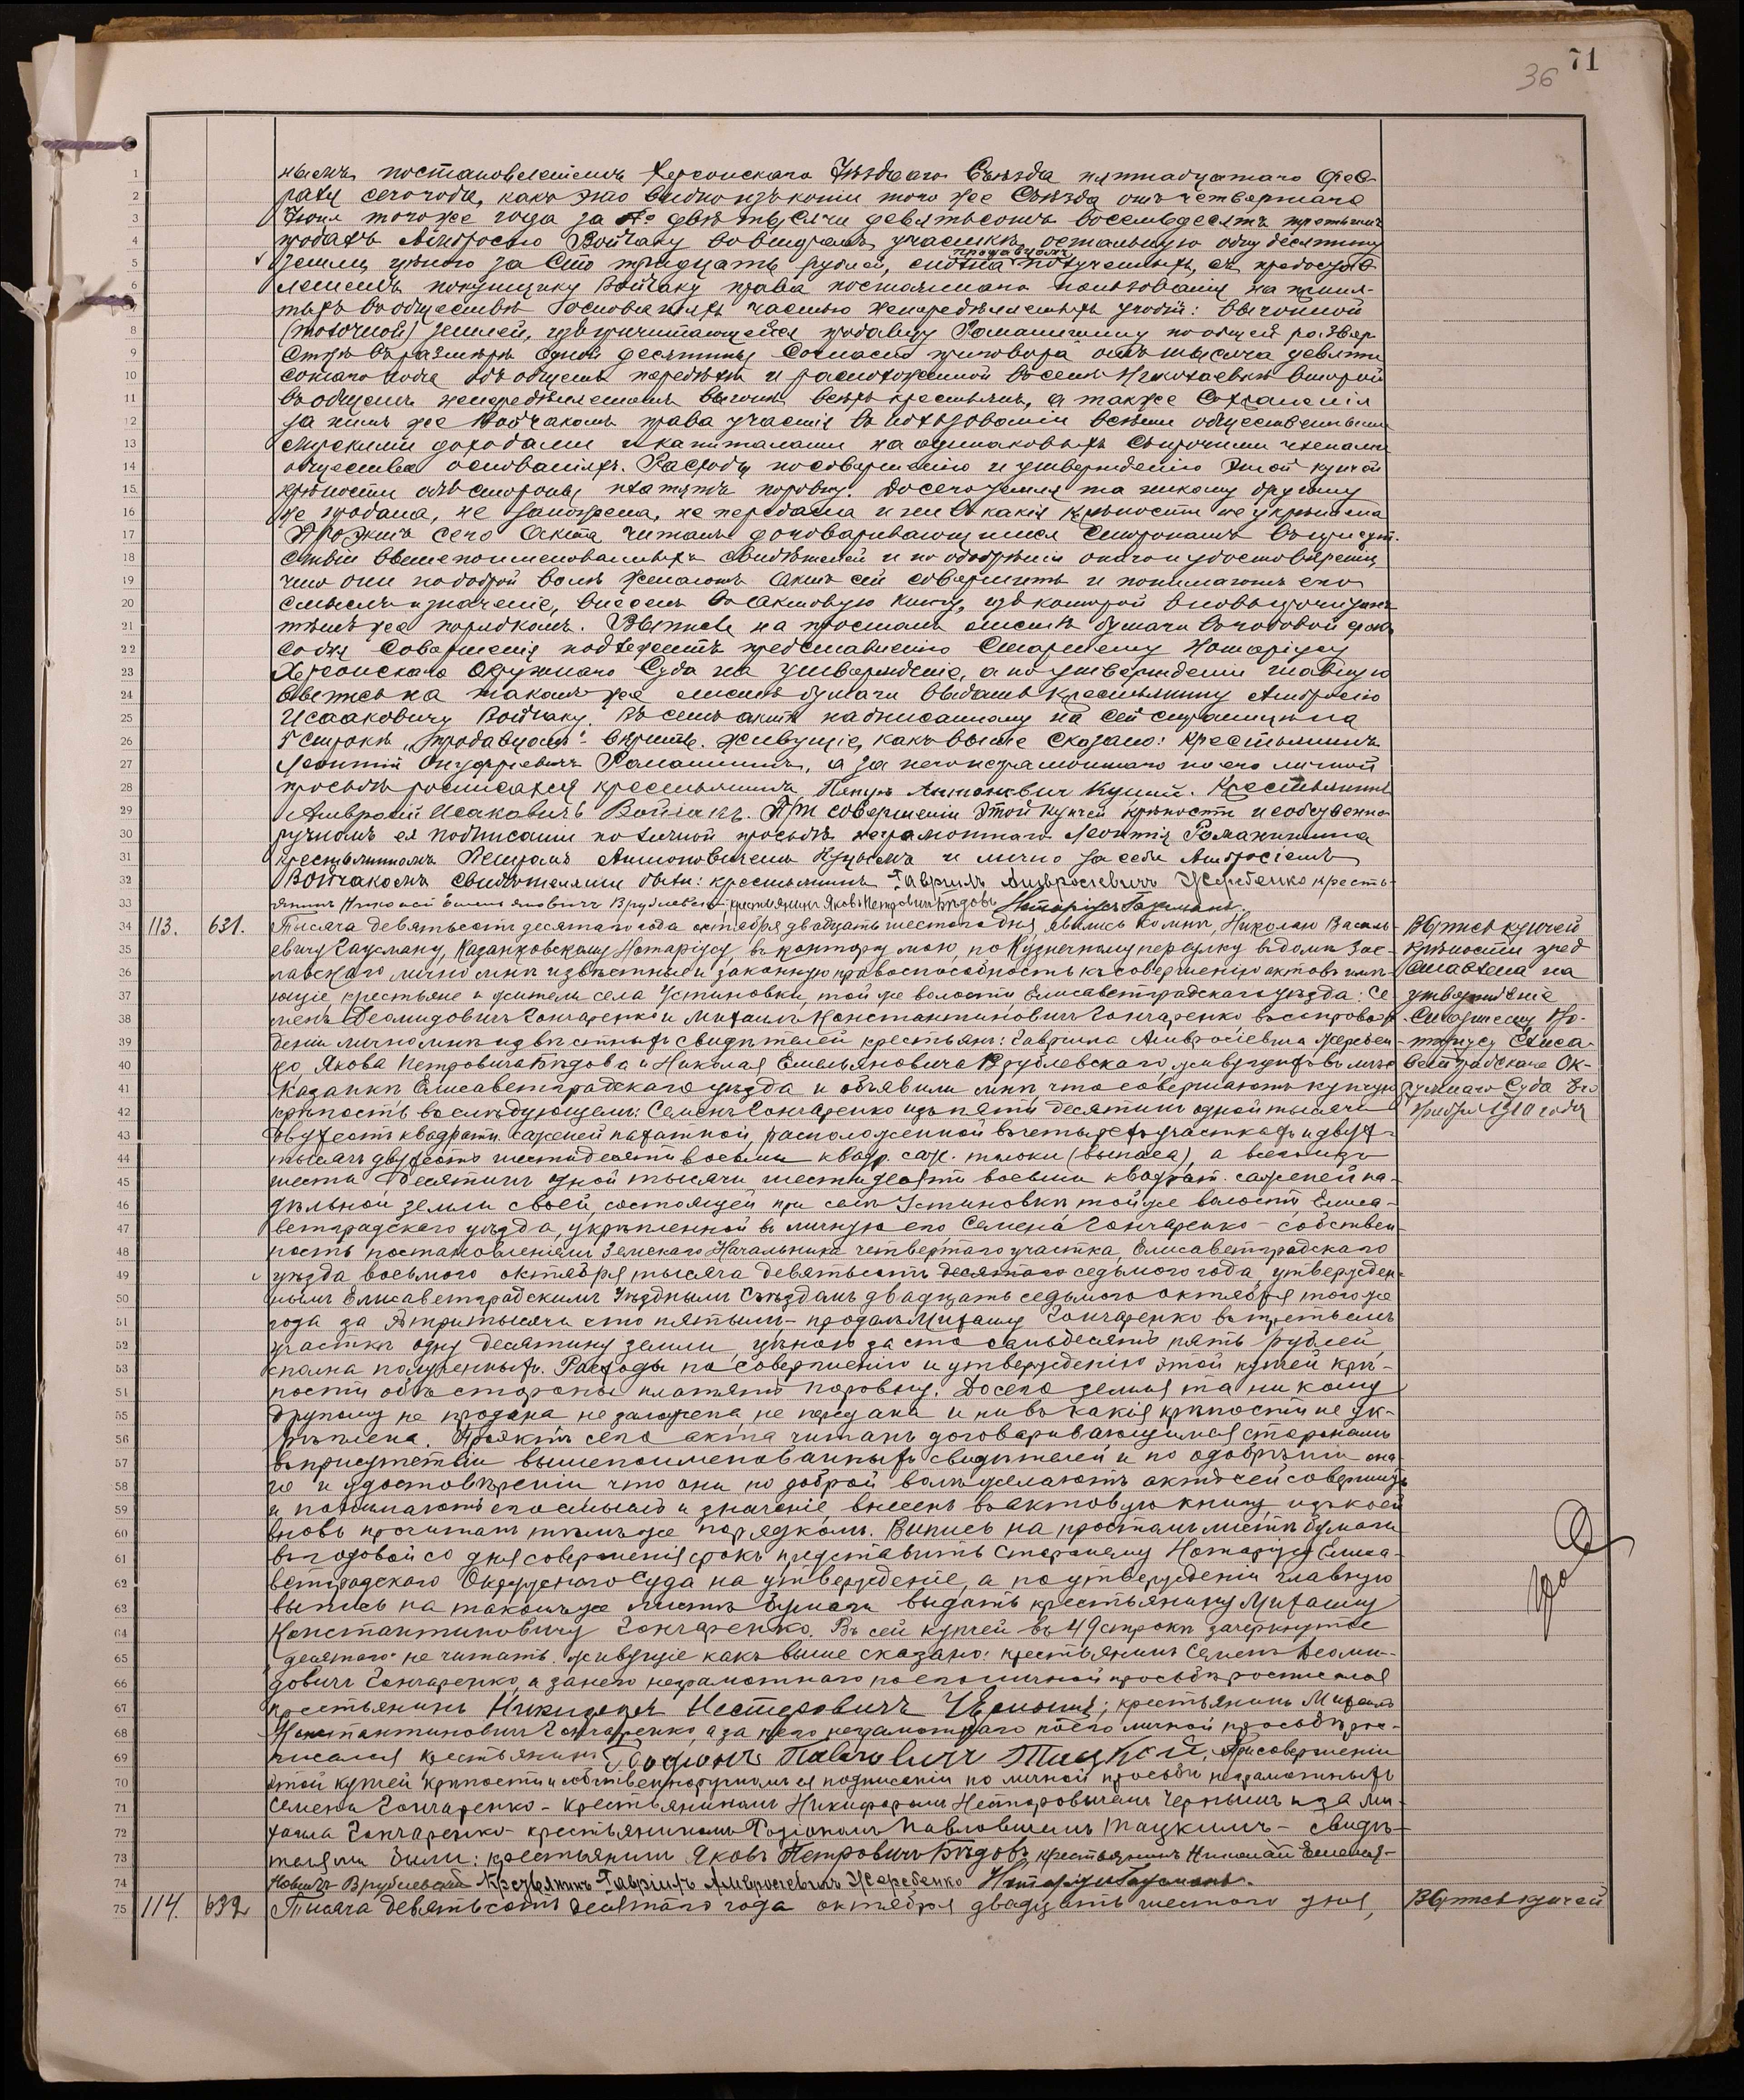 71
36
1 нымъ постановленіемъ Херсонскаго Уѣзднаго Съѣзда пятнадцатаго Фев-
2 раля сего года, какъ это видно изъ копіи того же Съѣзда отъ четвертаго
3 Іюня того же года за № двѣ тысячи девятьсотъ восемьдесятъ третьимъ
4 продалъ Амвросію Войчаку во второмъ участкѣ остальную одну десятину
продавцомъ
5 земли, цѣною за сто тридцать рублей, сполна полученныхъ, съ предостав-
6 леніемъ покупщику Войчаку права постояннаго пользованія на приня-
7 тыхъ въ обществѣ основаніяхъ частью непередѣляемыхъ угодій: выгонной
8 (толочной) землей, причитающейся продавцу Романишину по общей развер-
9 сткѣ въ размѣрѣ одной десятины согласно приговора отъ тысяча девяти
10 сотаго года объ общемъ передѣлѣ и расположенной въ селѣ Николаевкѣ второй
11 въ общемъ непередѣляемомъ выгонѣ всѣхъ крестьянъ, а также сохраненія
12 за нимъ же Войчакомъ права участія въ пользованіи всѣми общественными
13 мірскими доходами и капиталами на одинаковыхъ съ прочими членами
14 общества основаніяхъ. Расходы по совершенію и утвержденію этой купчей
15 крѣпости обѣ стороны платятъ поровну. До сего земля та никому другому
16 не продана, не заложена, не передана и ни въ какія крѣпости не укрѣплена
17 Проэктъ сего акта читанъ договаривающимся сторонамъ въ присут-
18 ствіи вышепоименованныхъ свидѣтелей и по одобреніи онаго и удостовѣреніи,
19 что они по доброй волѣ желаютъ актъ сей совершить и понимаютъ его
20 смыслъ и значеніе, внесенъ въ актовую книгу, изъ которой вновь прочитанъ
21 тѣмъ же порядкомъ. Выпись на простомъ листѣ бумаги въ годовой срокъ
22 со дня совершенія подлежитъ представленію Старшему Нотаріусу
23 Херсонскаго Окружнаго Суда на утвержденіе, а по утвержденіи главную
24 выпись на такомъ же листѣ бумаги выдать крестьянину Амвросію
25 Исааковичу Войчаку. Въ семъ актѣ надписанному на сей страницѣ на
26 5 строкѣ „продавцомъ" - вѣрить. Живущіе, какъ выше сказано: крестьянинъ
27 Леонтій Онуфріевичъ Романишинъ, а за него неграмотнаго по его личной
28 просьбѣ росписался крестьянинъ Петръ Антоновичъ Куцый. Крестьянинъ
29 Амвросій Исаковичъ Войчакъ. При совершеніи этой купчей крѣпости и собственно-
30 ручномъ ея подписаніи по личной просьбѣ неграмотнаго Леонтія Романишина
31 крестьяниномъ Петромъ Антоновичемъ Куцымъ и лично за себя Амвросіемъ
32 Войчакомъ свидѣтелями были: крестьянинъ Гавріилъ Амвросіевичъ Жеребенко кресть-
33 янинъ Николай Емельяновичъ Врублевскій, крестьянинъ Яковъ Петровичъ Бѣдовъ Нотаріусъ Гаусманъ.
34 113. 631. Тысяча девятьсотъ десятаго года октября двадцать шестого дня, явились ко мнѣ, Николаю Василь- Выпись купчей
35 евичу Гаусману, Казанковскому Нотаріусу, въ контору мою, по Кузнечному переулку въ домѣ Зас- крѣпости пред
36 лавскаго лично мнѣ извѣстные и законную правоспособность къ совершенію актовъ имѣ- ставлена на
37 ющіе, крестьяне и жители села Устиновки, той же волости Елисаветградскаго уѣзда: Се- утвержденіе
38 менъ Деомидовичъ Гончаренко и Михаилъ Константиновичъ Гончаренко въ сопровож- Старшему Но-
39 деніи лично мнѣ извѣстныхъ свидѣтелей крестьянъ: Гавріила Амвросіевича Жеребен- таріусу Елиса-
40 ко, Якова Петровича Бѣдова и Николая Емельяновича Врублевскаго живущихъ въ мѣст. ветградскаго Ок-
41 Казанкѣ Елисаветградскаго уѣзда и объявили мнѣ, что совершаютъ купчую ружнаго Суда
42 крѣпость въ слѣдующемъ: Семенъ Гончаренко изъ пяти десятинъ одной тысячи 1910 года
43 двухсотъ квадратн. саженей пахатной, расположенной въ четырехъ участкахъ и двухъ
44 тысячъ двухсотъ шестидесяти восьми квадр. саж. толоки (выпаса), а всего изъ
45 шести десятинъ одной тысячи шестидесяти восьми квадрат. саженей на-
46 дѣльной земли своей, состоящей при селѣ Устиновкѣ той же волости, Елиса-
47 ветградскаго уѣзда, укрѣпленной въ личную его Семена Гончаренко - собствен-
48 ность постановленіемъ Земскаго Начальника четвертаго участка, Елисаветградскаго
49 уѣзда восьмого октября тысяча девятьсотъ десятаго седьмого года, утвержден-
50 нымъ Елисаветградскимъ Уѣзднымъ Съѣздомъ двадцать седьмого октября того же
51 года за № три тысячи сто пятымъ - продалъ Михаилу Гончаренко въ третьемъ
52 участкѣ одну десятину земли, цѣною за сто семьдесятъ пять рублей,
53 сполна полученныхъ. Расходы по совершенію и утвержденію этой купчей крѣ-
54 пости обѣ стороны платятъ поровну. До сего земля та никому
55 другому не продана, не заложена, не передана и ни въ какія крѣпости не ук-
56 рѣплена. Проэктъ сего акта читанъ договаривающимся сторонамъ
57 въ присутствіи вышепоименованныхъ свидѣтелей и по одобреніи она-
58 го и удостовѣреніи что они по доброй волѣ желаютъ актъ сей совершить
59 и понимаютъ его смыслъ и значеніе, внесенъ въ актовую книгу, изъ коей
60 вновь прочитанъ тѣмъ же порядкомъ. Выпись на простомъ листѣ бумаги
61 въ годовой со дня совершенія срокъ представить Старшему Нотаріусу Елиса-
62 ветградскаго Окружнаго Суда на утвержденіе, а по утвержденіи главную
63 выпись на такомъ же листѣ бумаги выдать крестьянину Михаилу
64 Константиновичу Гончаренко. Въ сей купчей въ 49 строкѣ зачеркнутое
65 „десятаго" не читать. Живущіе какъ выше сказано: крестьянинъ Семенъ Деоми-
66 довичъ Гончаренко, а за него неграмотнаго по его личной просьбѣ росписался
67 крестьянинъ Никифоръ Нестеровичъ Черный; крестьянинъ Михаилъ
68 Константиновичъ Гончаренко, а за него неграмотнаго по его личной просьбѣ рос-
69 писался крестьянинъ Родіонъ Павловичъ Тацкій. При совершеніи
70 этой купчей крѣпости и собственноручномъ ея подписаніи по личной просьбѣ неграмотныхъ
71 Семена Гончаренко - крестьяниномъ Никифоромъ Несторовичемъ Чернымъ и за Ми-
72 хаила Гончаренко - крестьяниномъ Родіономъ Павловичемъ Тацкимъ - свидѣ-
73 телями были: крестьянинъ Яковъ Петровичъ Бѣдовъ, крестьянинъ Николай Емелья-
74 новичъ Врублевскій Крестьянинъ Гавріилъ Амвросіевичъ Жеребенко Нотаріусъ Гаусманъ.
75 114. 632 Тысяча девятьсотъ десятаго года октября двадцать шестого дня, Выпись купчей